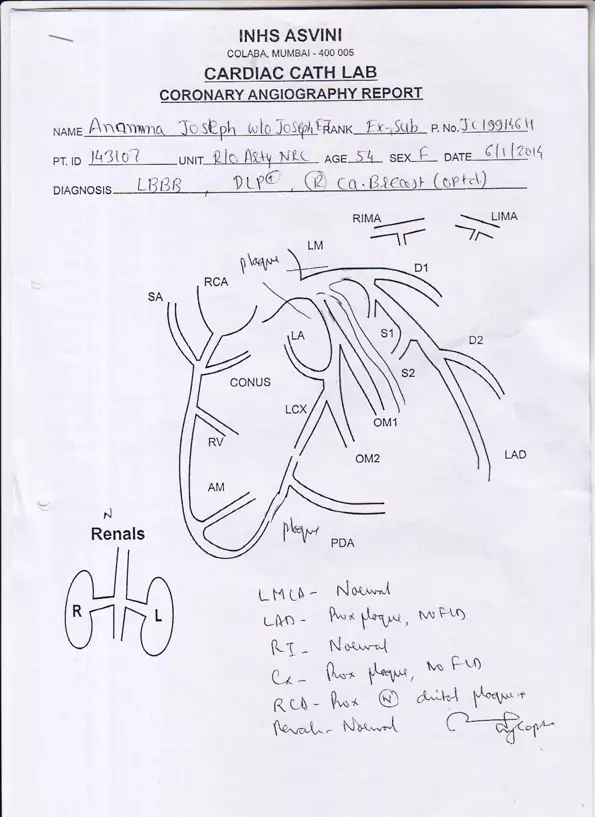 INHS ASVINI
COLABA, MUMBAI - 400 005
CARDIAC CATH LAB
CORONARY ANGIOGRAPHY REPORT
NAME Anamma Joseph w/o Joseph RANK Ex-Sub P. No. JC199146H
PT. ID 143107 UNIT R/o Arty NRC AGE 54 SEX F DATE 6/1/2014
DIAGNOSIS LBBB, DLP+, (R) Ca. Breast (optd)
RIMA LIMA
LM
plaque D1
RCA
SA
LA S1 D2
CONUS S2
LCX
OM1
RV
OM2 LAD
AM
N
Renals plaque
PDA
R L
LMCA - Normal
LAD - Prox plaque, No FLD
RI - Normal
Cx - Prox plaque, No FLD
RCA - Prox (N) distal plaque +
Renals - Normal